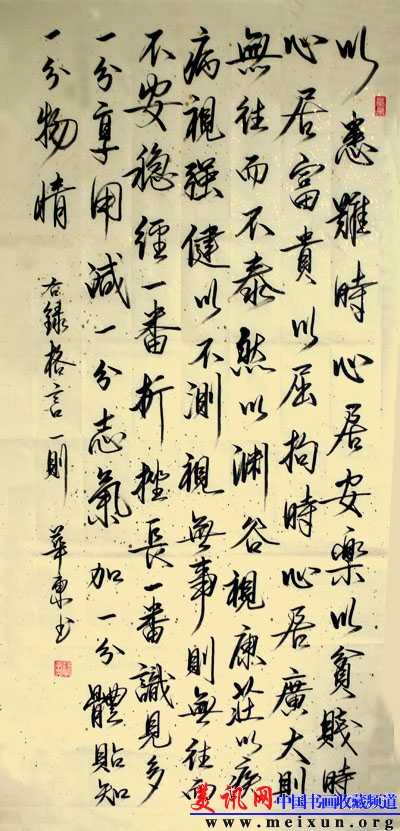 以患難時心居安樂以貧賤時
心居富貴以屈拘時心居廣大則
無往而不泰然以淵谷視康莊以疾
病視强健以不測視無事則無往而
不安穩經一番折挫長一番識見多
一分享用減一分志氣加一分體貼知
一分物情
右録格言一則 華東书
美讯网 中国书画收藏频道
www.meixun.org